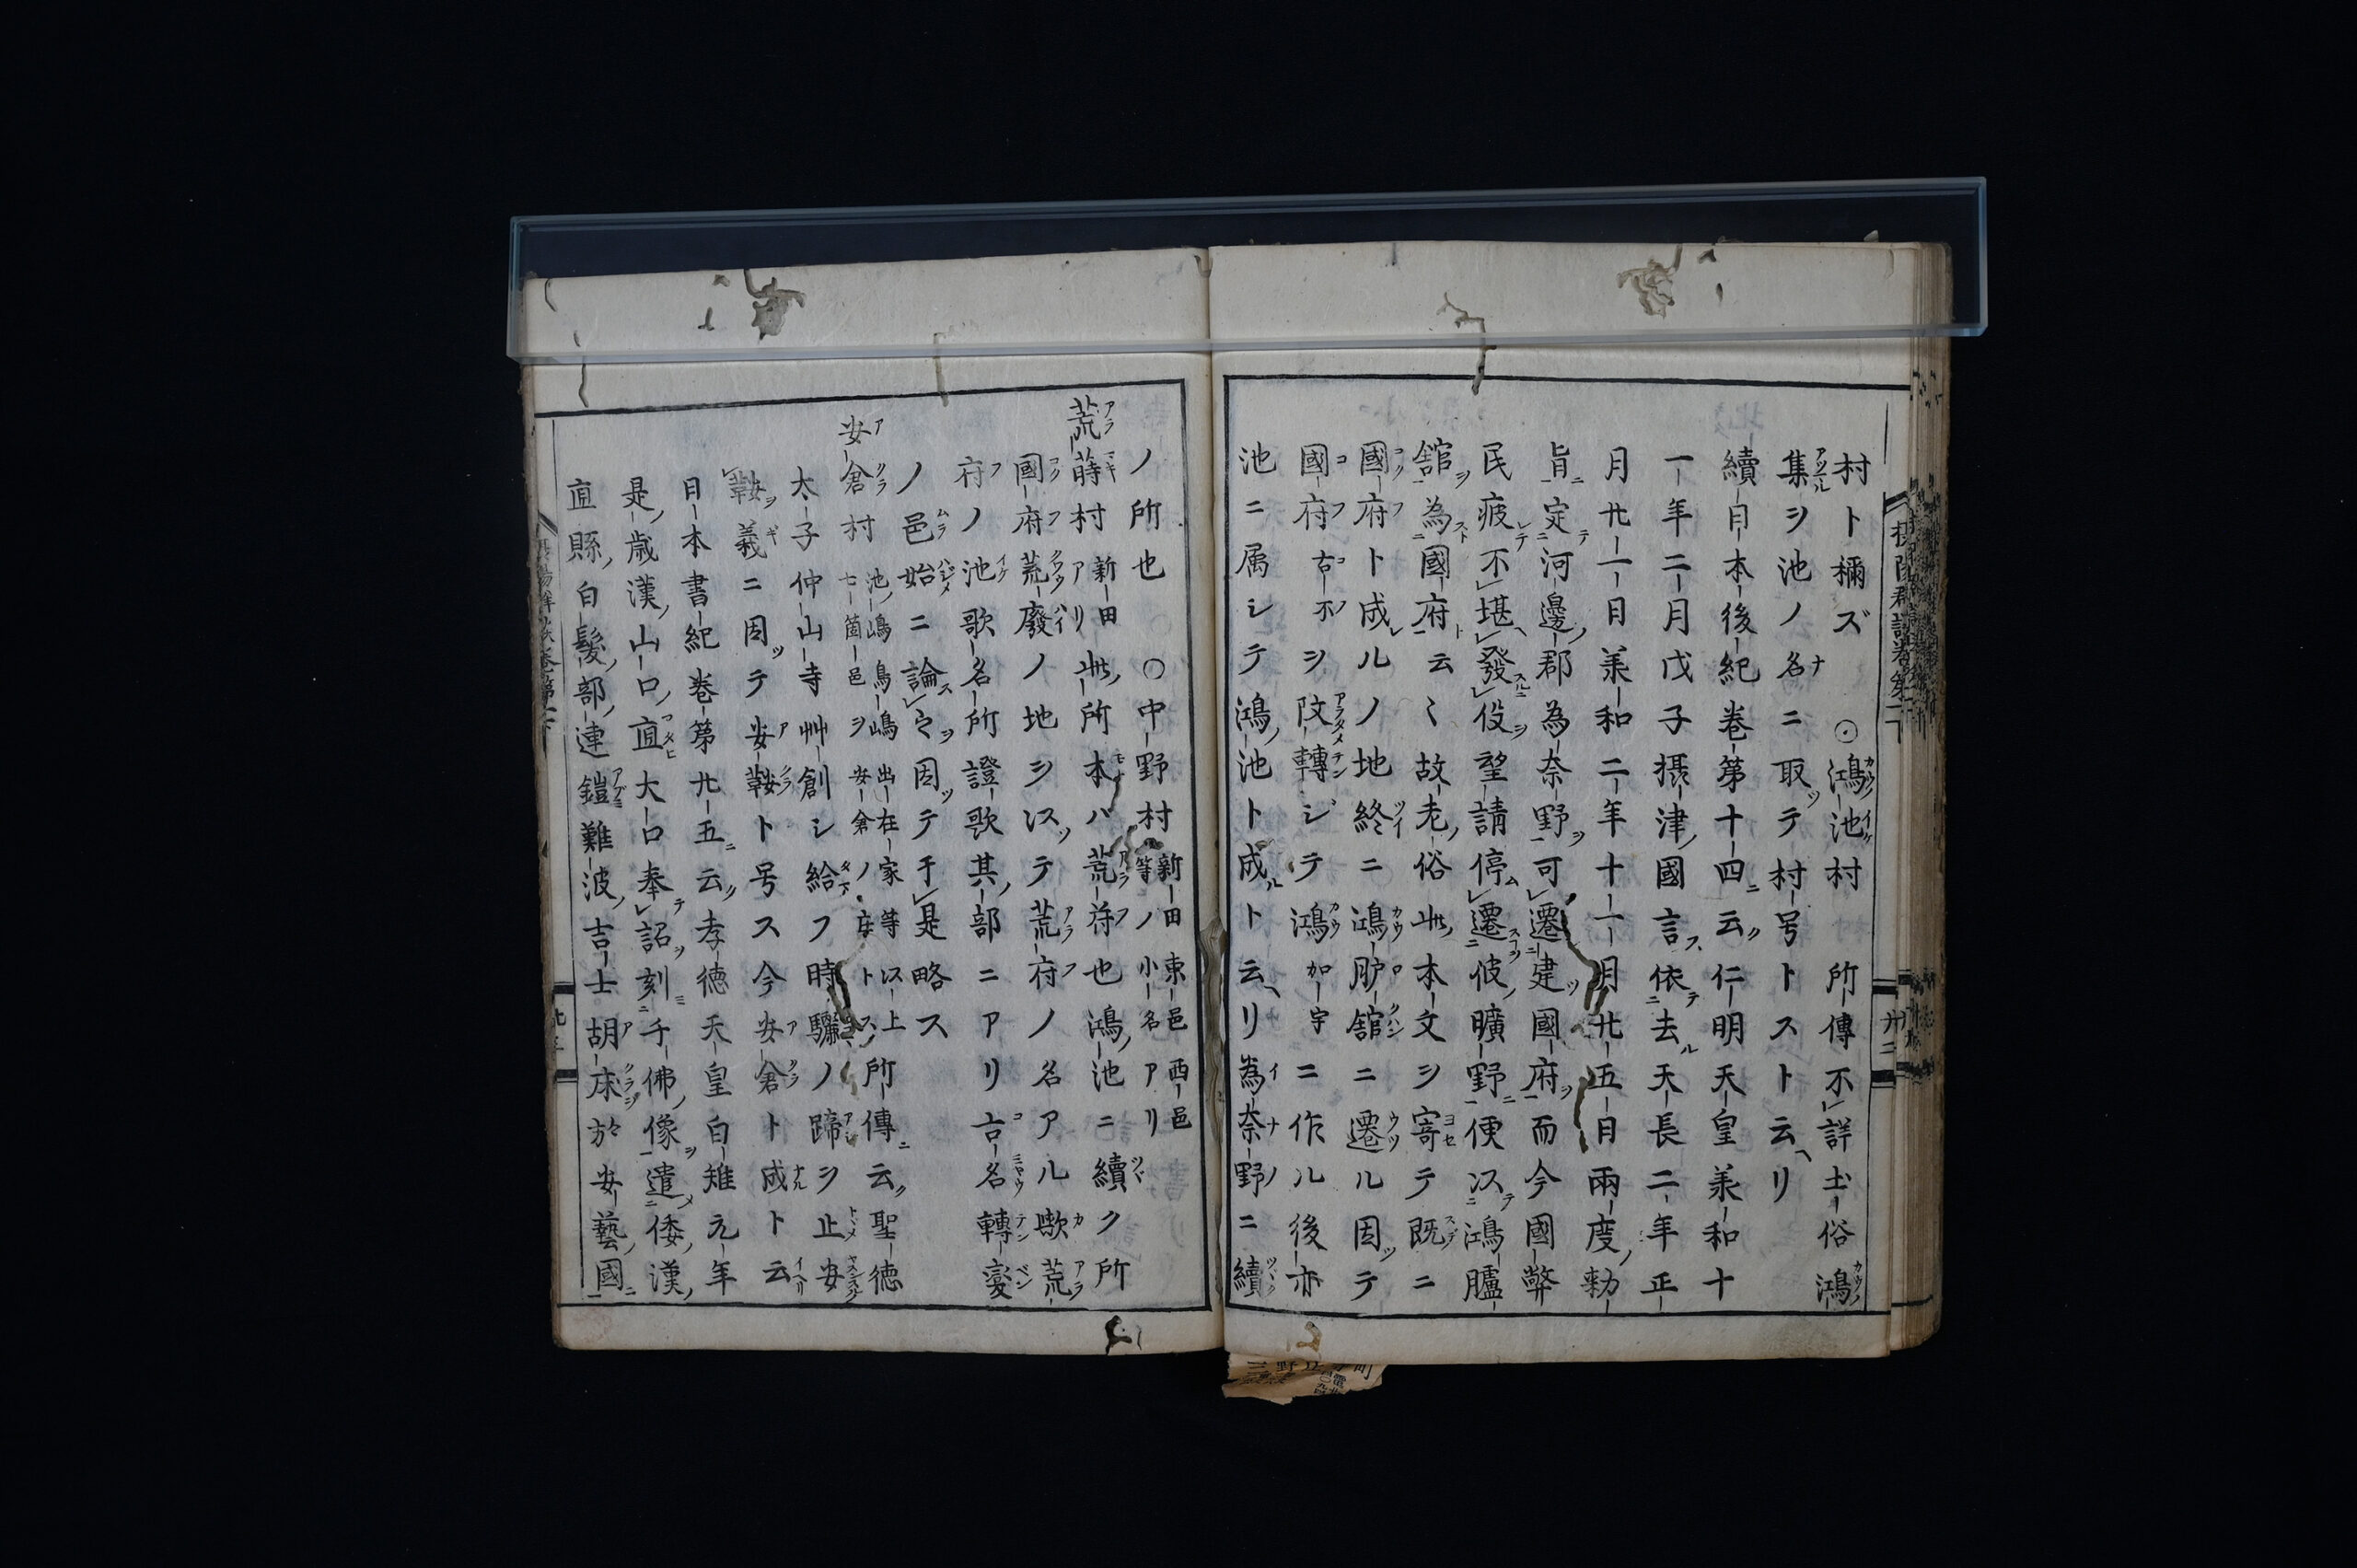 村ト穪ズ　⊙鴻池村　所傳不詳土俗鴻
集ヲ池ノ名ニ取テ村号トスト云ヘリ
續日本後紀巻第十四云仁明天皇羕和十
一年二月戊子攝津國言依去天長二年正
月廿一日羕和二年十一月廿五日兩度勅
旨定河邊郡為奈野可遷建國府而今國弊
民疲不堪發役望請停遷彼曠野便以鴻臚
舘為國府云〻故老俗此本文ヲ寄テ既ニ
國府ト成ルノ地終ニ鴻臚舘ニ遷ル因テ
國府古不ヲ改轉シテ鴻加宇ニ作ル後亦
池ニ属シテ鴻池ト成ルト云リ為奈野ニ續
ノ所也　〇中野村新田東邑西邑等ノ小名アリ
荒蒔村新田アリ此所本ハ荒苻也鴻池ニ續ク所
國府荒廢ノ地ヲ以テ荒府ノ名アル歟荒
府ノ池歌名所證歌其部ニアリ古名轉變
ノ邑始ニ論之因テ于是略ス
安倉村池嶋鳥嶋出在家等以上七箇邑ヲ安倉ノ庄トス所傳云聖徳
太子仲山寺艸創シ給フ時驪ノ蹄ヲ止安
鞍義ニ因テ安鞍ト号ス今安倉ト成ト云
日本書紀巻第廿五云孝徳天皇白雉元年
是歳漢山口直大口奉詔刻千佛像遣倭漢
直縣白髮部連鐙難波吉士胡床於安藝國